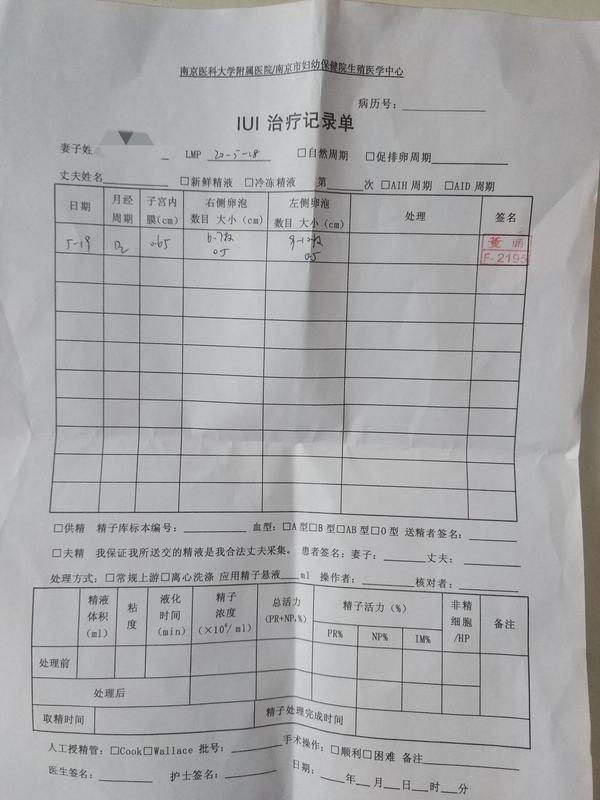 南京医科大学附属医院/南京市妇幼保健院生殖医学中心
病历号：
IUI 治疗记录单
妻子姓 LMP 20-5-18 □自然周期 □促排卵周期
丈夫姓名 □新鲜精液 □冷冻精液 第 次 □AIH 周期 □AID 周期
日期 月经周期 子宫内膜(cm) 右侧卵泡数目 大小(cm) 左侧卵泡数目 大小(cm) 处理 签名
5-19 D2 0.65 6-7枚 0.5 9-10枚 0.5 董丽 F-2195
□供精 精子库标本编号： 血型：□A型□B型□AB型□O型 送精者签名：
□夫精 我保证我所送交的精液是我合法丈夫采集。 患者签名：妻子： 丈夫：
处理方式：□常规上游□离心洗涤 应用精子悬液 ml 操作者： 核对者：
精液体积(ml) 粘度 液化时间(min) 精子浓度(×10⁶/ml) 总活力(PR+NP,%) 精子活力(%) 非精细胞/HP 备注
PR% NP% IM%
处理前
处理后
取精时间 精子处理完成时间
人工授精管：□Cook□Wallace 批号： 手术操作：□顺利□困难 备注
医生签名： 护士签名： 日期： 年 月 日 时 分